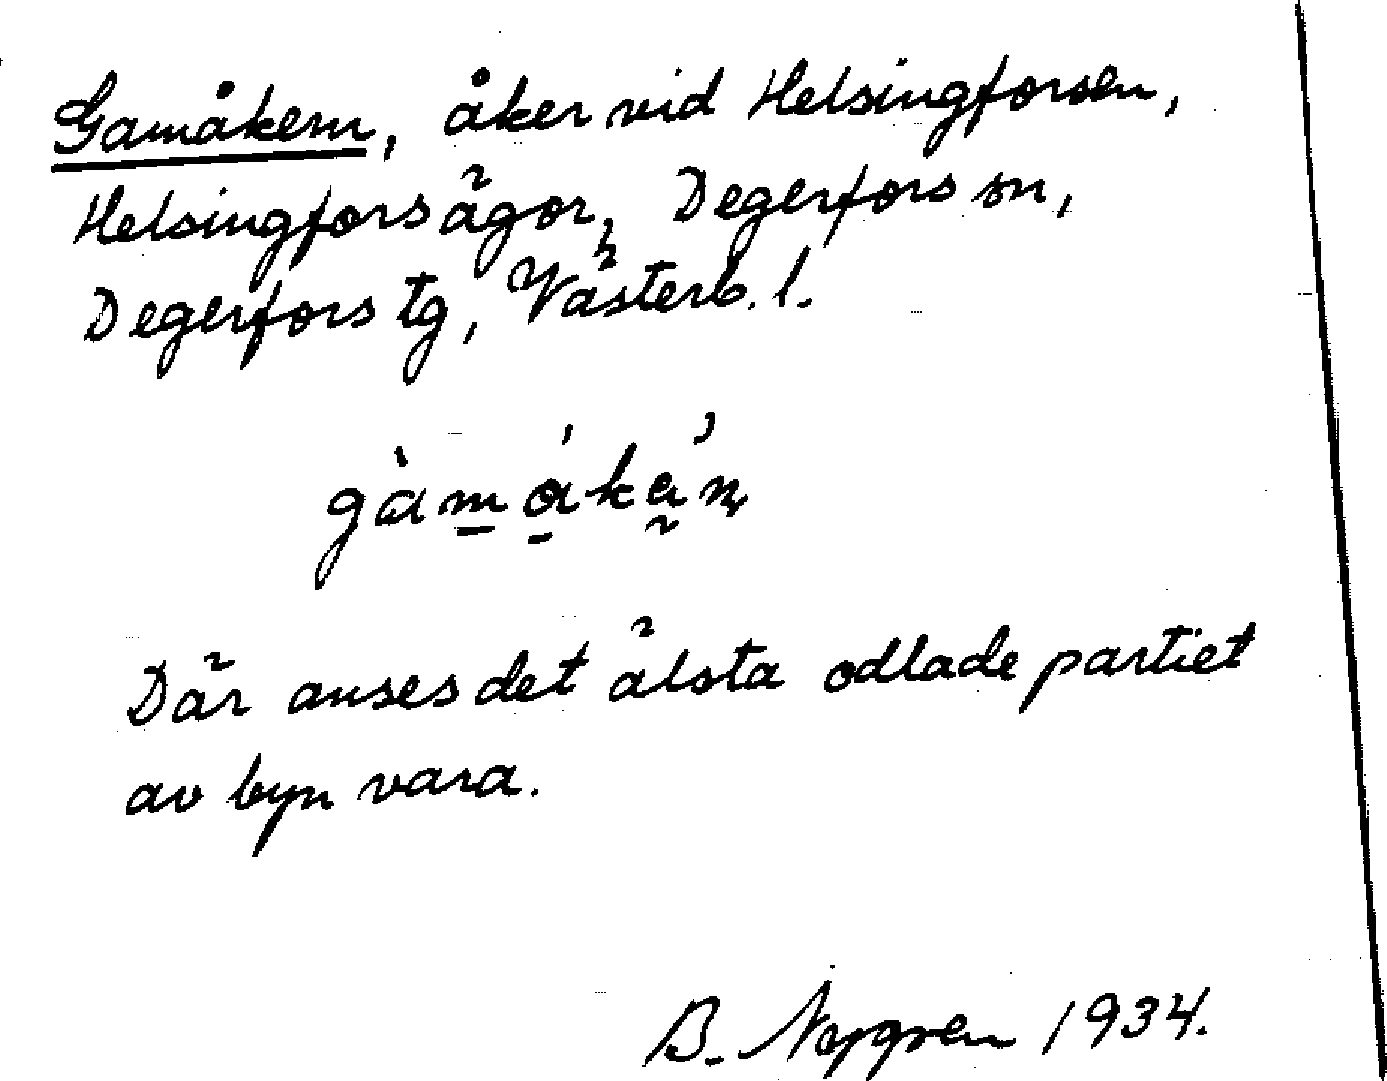 Gamåkern, åker vid Helsingforsen,
Helsingfors ägor, Degerfors sn,
Degerfors tg, Västerb. l.
gàmákən
Där anses det älsta odlade partiet
av byn vara.
B. Nygren 1934.